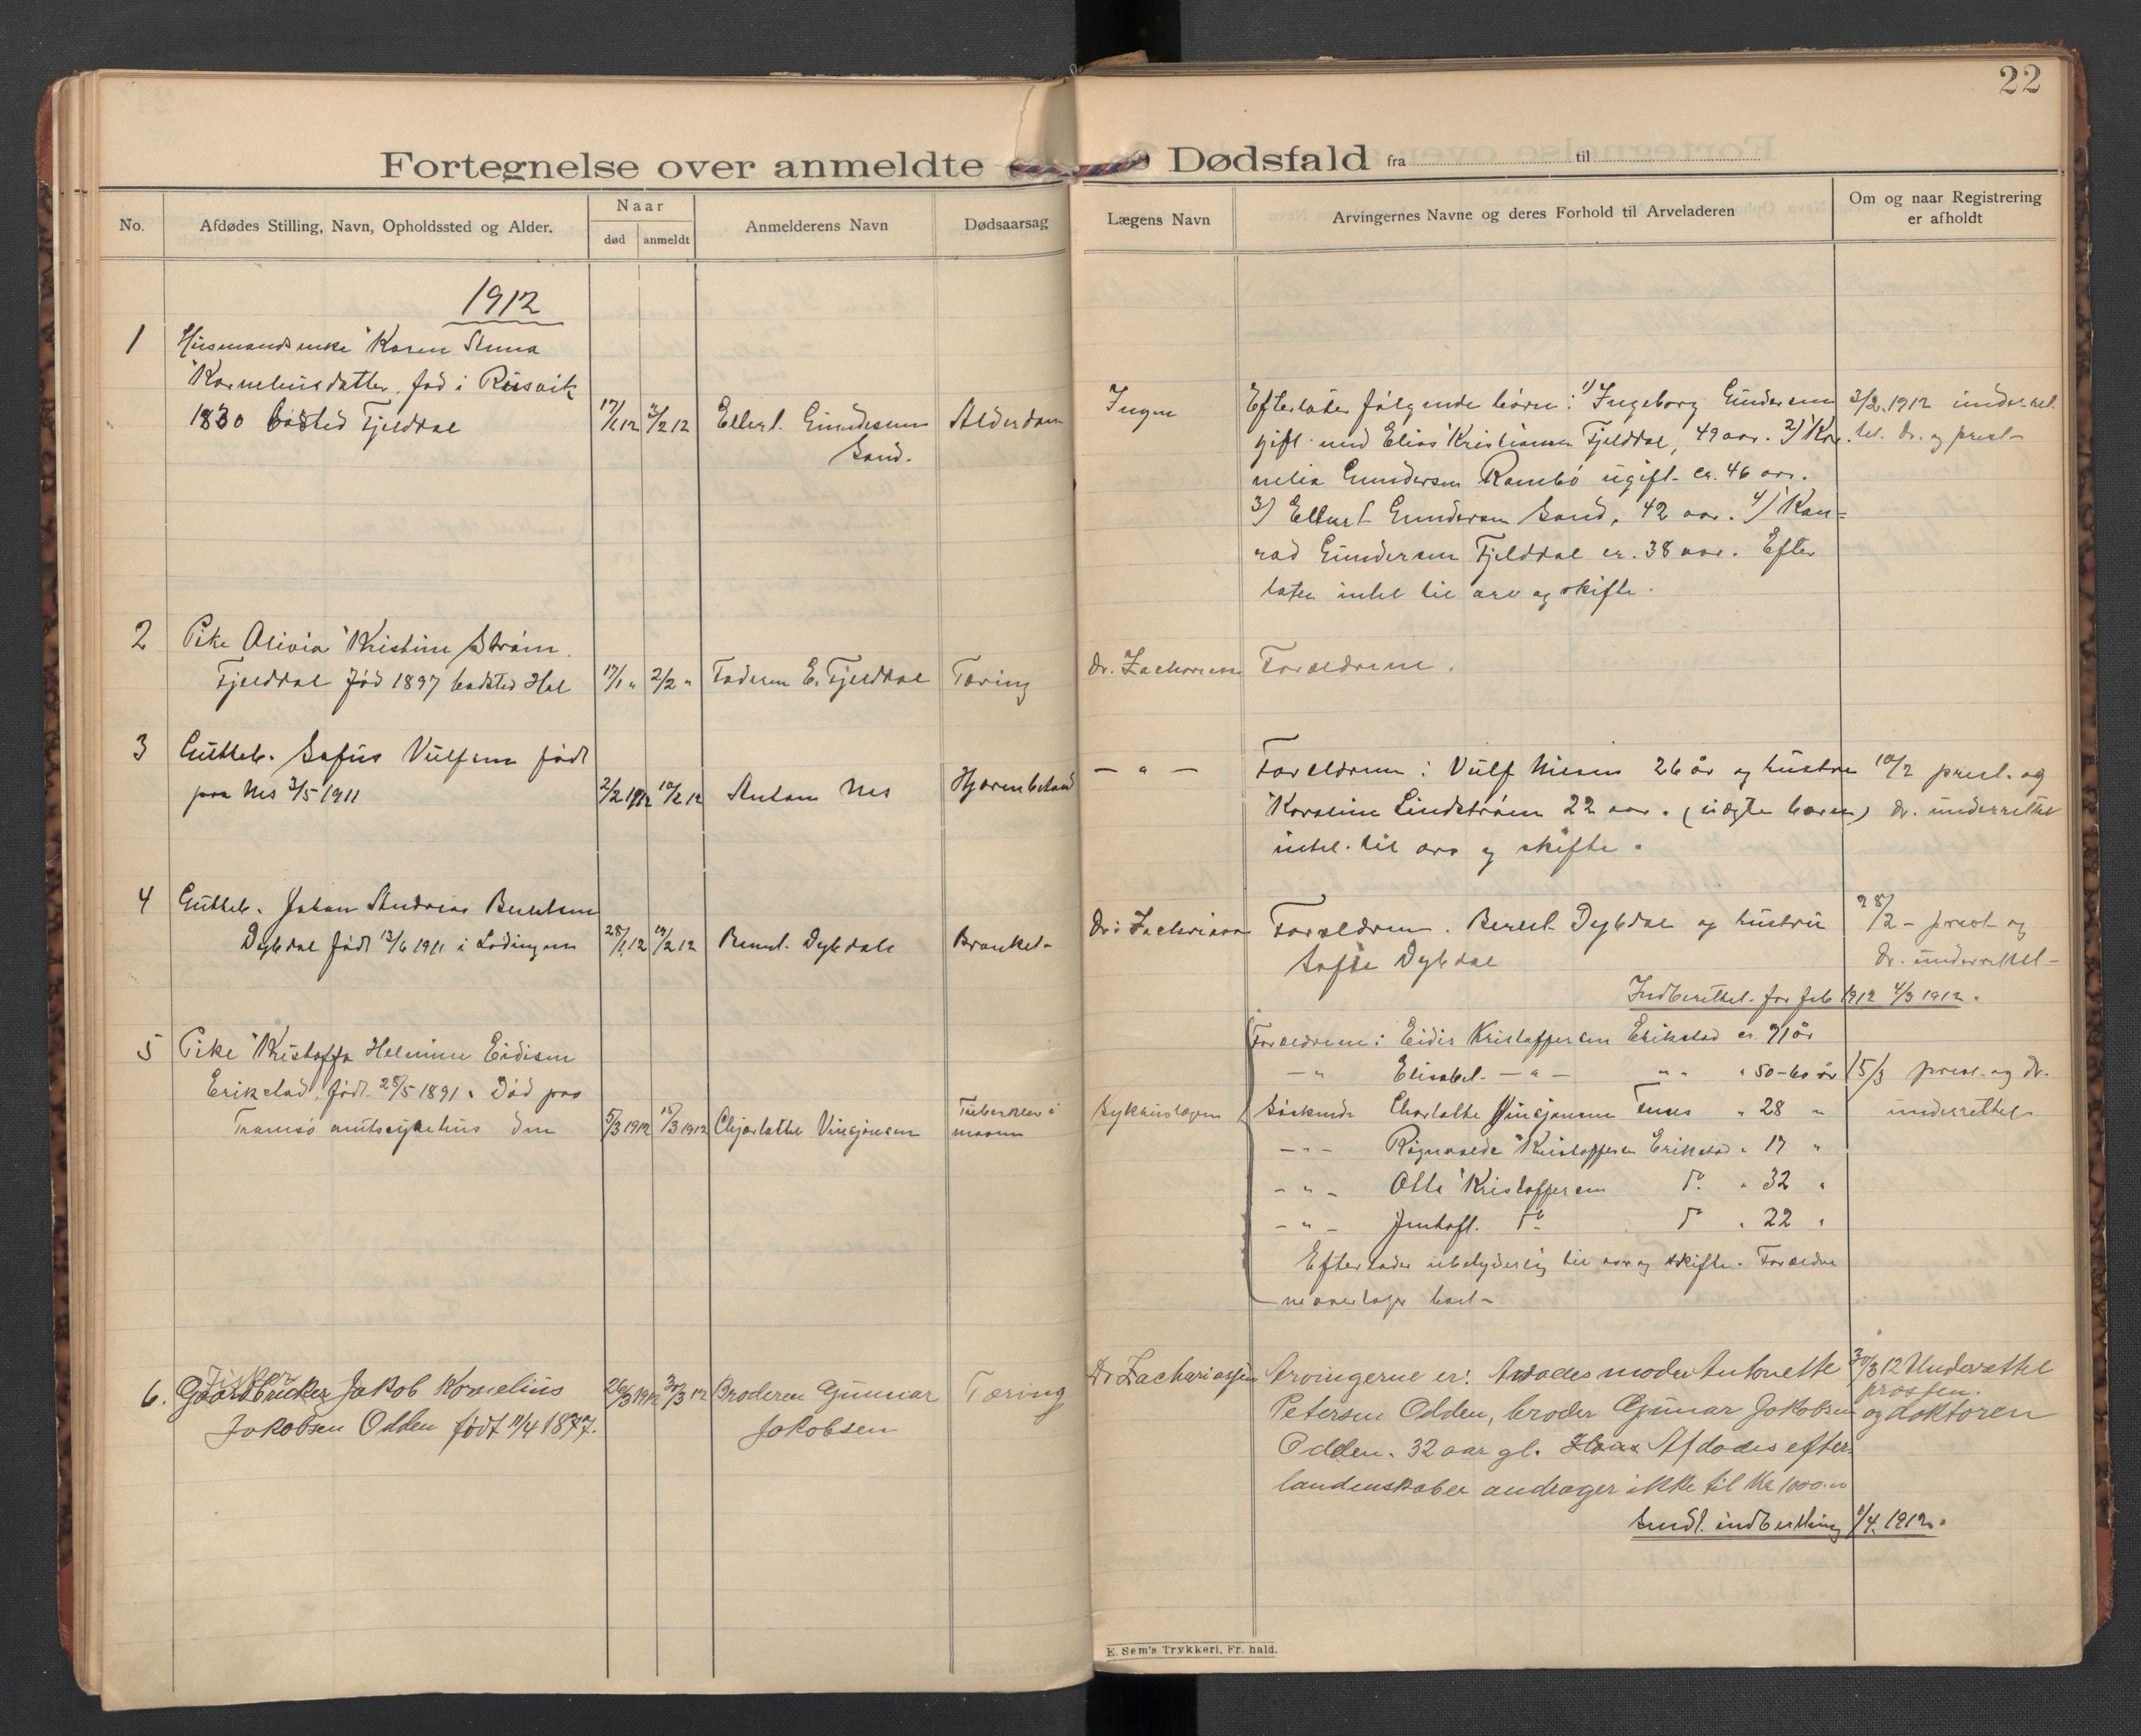 22
Fortegnelse over anmeldte Dødsfald fra til
No.
Afdødes Stilling, Navn, Opholdssted og Alder.
Naar
død anmeldt
Anmelderens Navn
Dødsaarsag
Lægens Navn
Arvingernes Navne og deres Forhold til Arveladeren
Om og naar Registrering
er afholdt
1912
1
Husmandsenke Karen Anna
Korneliusdatter, fød i Rusvik
1830 bosted Fjelddal
17/1 12
3/2 12
Ellert Gundersen
Sand.
Alderdom
Ingen
Efterlater følgende børn: 1) Ingeborg Gundersen
gift med Elias Kristiansen Fjelddal, 49 aar. 2) Kor-
nelia Gundersen Rambø ugift ca. 46 aar.
3) Ellert Gundersen Sand, 42 aar. 4) Kon=
rad Gundersen Fjelddal ca. 38 aar. Efter
later intet til arv og skifte.
3/2 1912 underret-
tet dr. og prest
2
Pike Olivia Kristine Strøm
Fjelddal fød 1897 bosted Hol
17/1 "
2/2 "
Faderen E. Fjelddal
Tæring
Dr. Zachariassen
Forældrene.
3
Gutteb. Sofus Vulfsen født
paa Nes 3/5 1911
2/2 1912
10/2 12
Anton Nes
Hjernebetænd
— " —
Forældrene: Vulf Nilsen 26 år og hustru
Karoline Lindstrøm 22 aar. (uægte barn)
intet til arv og skifte.
10/2 prest og
dr. underrettet
4
Gutteb. Johan Andreas Berntsen
Dybdal født 13/6 1911 i Lødingen
28/1 12
19/2 12
Bernt Dybdal
Bronkit
Dr. Zachariassen
Forældrene. Bernt Dybdal og hustru
Sofie Dybdal
28/2 - prest og
dr. underrettet
Indberettet for feb 1912 4/3 1912.
5
Pike Kristoffa Helmine Eidisen
Erikstad, født 28/5 1891. Død paa
Tromsø amtssykehus den
5/3 1912
15/3 1912
Chjarlotte Vinsjansen
Tuberklers i
maven
Sykehuslægen
Forældrene: Eidis Kristoffersen Erikstad ca. 71 år
— " Elisabet — " — " " " 50-60 år
Søskende Charlotte Vinsjansen " 28 "
— " — Ragnvalda Kristoffersen Erikstad " 17 "
— " — Otto Kristoffersen do. " 32 "
— " — do. do " 22 "
Efterlader ubetydelig til arv og skifte. Forældre
ne overtager boet
15/3 prest og dr.
underrettet
6.
Fisker
Gaardbruker Jakob Kornelius
Jakobsen Odden født 11/4 1877.
26/3 1912
30/3 12
Broderen Gunnar
Jakobsen
Tæring
Dr Zachariassen
Arvingerne er: Avdødes moder Antonette
Petersen Odden, broder Gunnar Jakobsen
Odden. 32 aar gl. Hans Afdødes efter-
ladenskaber andrager ikke til Kr 1000.00
30/3 12 Underettet
prosten.
og doktoren
Sendt indberetning 1/4. 1912.
E. Sem's Trykkeri, Fr. hald.